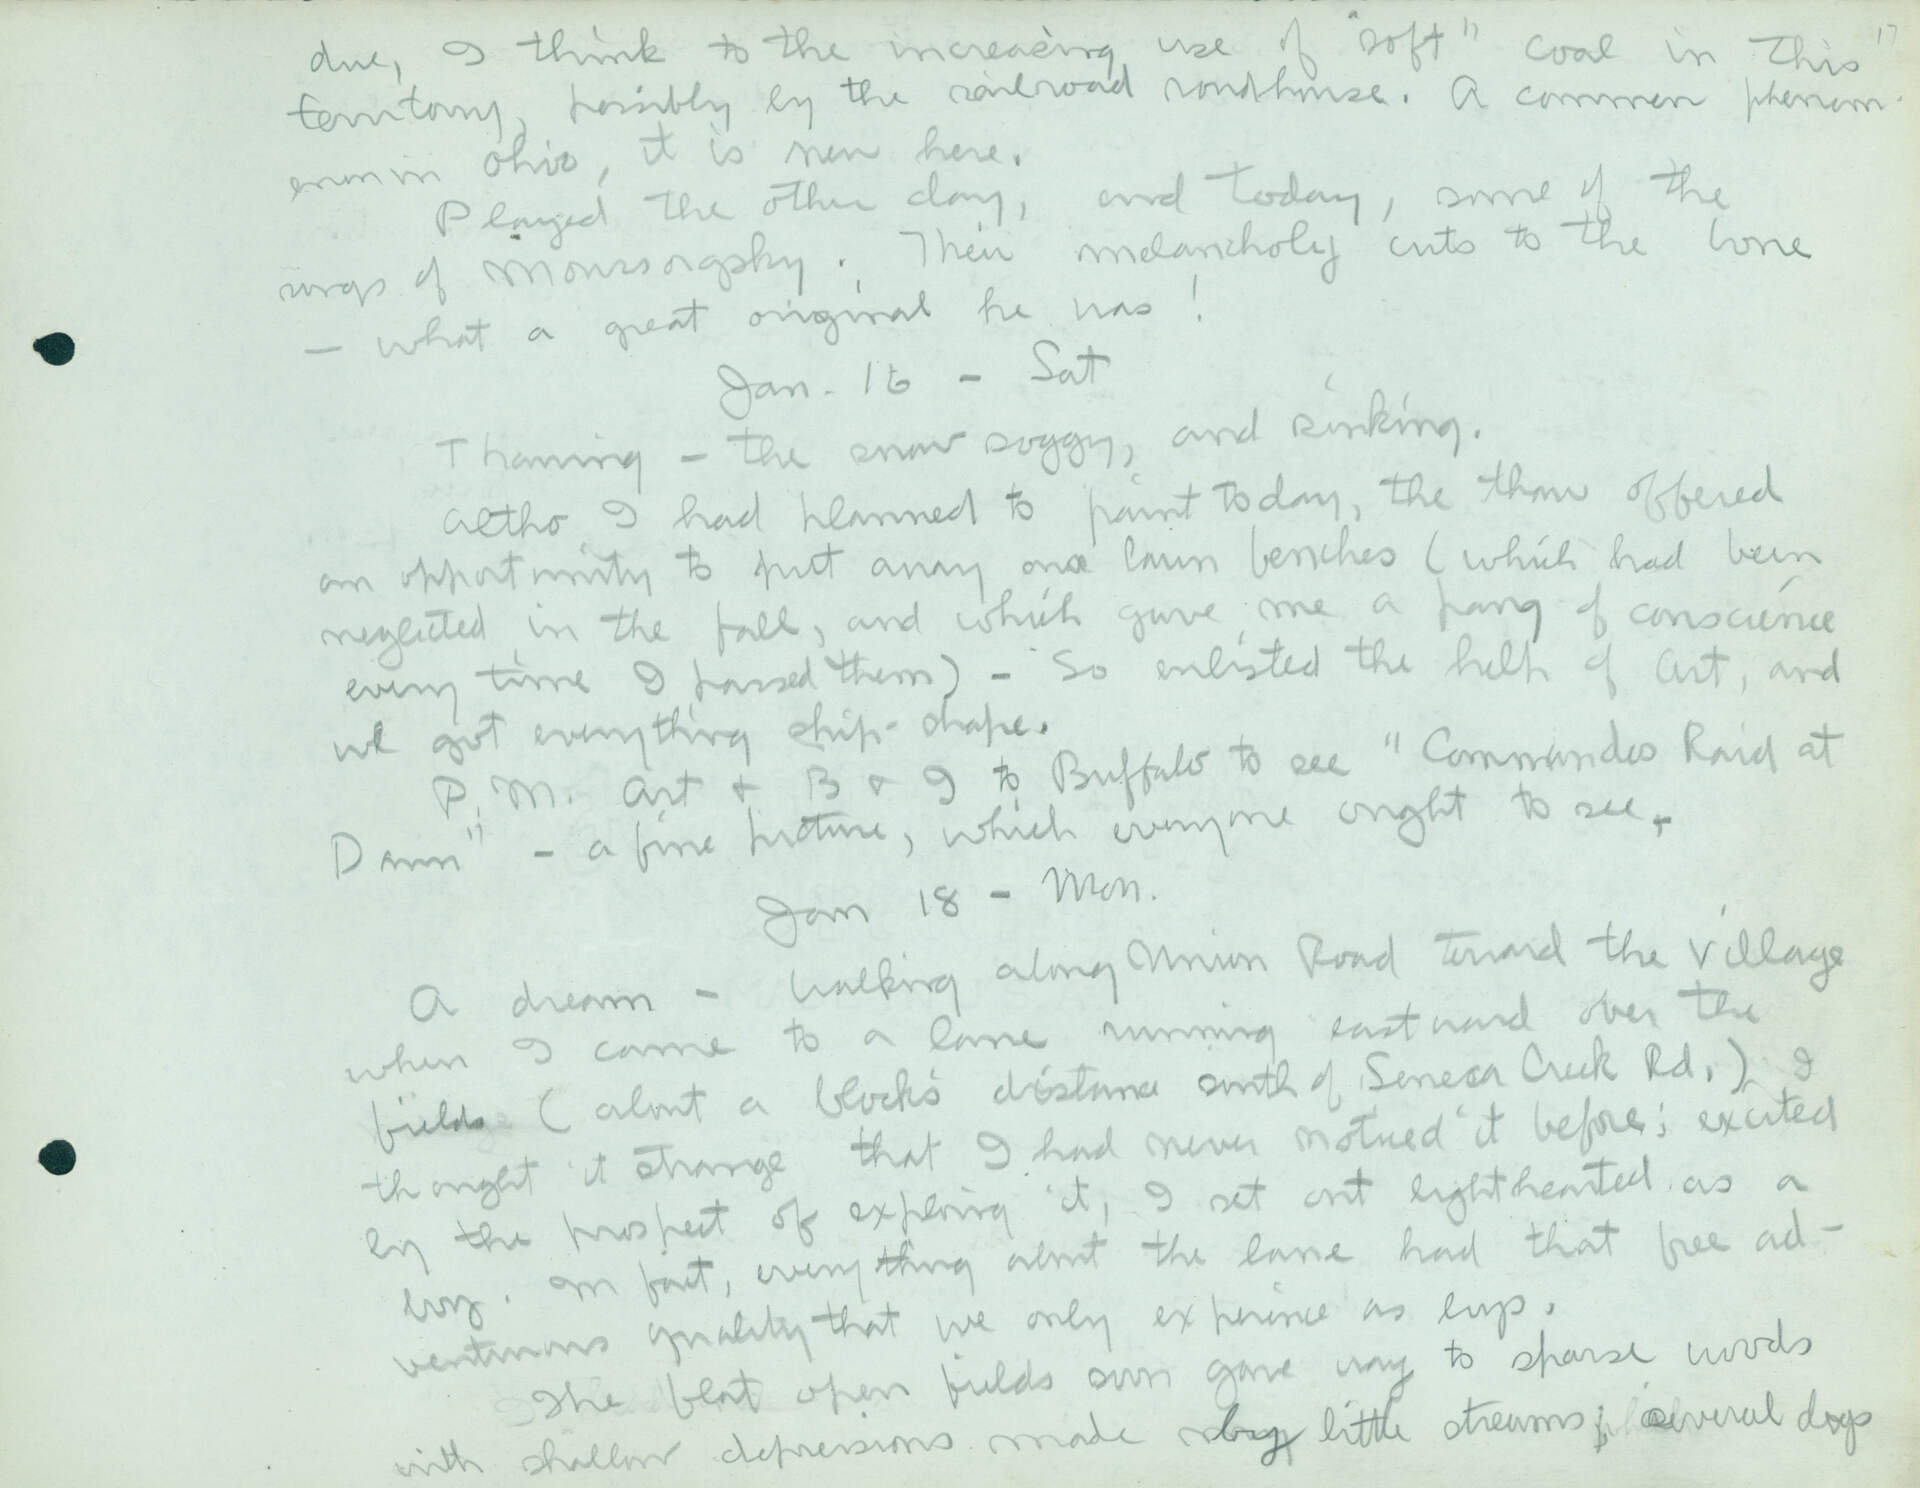 17
due, I think to the increasing use of "soft" coal in this"
territory, possibly by the railroad roundhouse. A common phenom-
enon in Ohio, it is new here.
Played the other day, and today, some of the
songs of Moussorgsky. Their melancholy cuts to the bone
— what a great original he was!
Jan. 16 - Sat
Thawing - the snow soggy, and sinking.
Altho I had planned to paint today, the thaw offered
an opportunity to put away our lawn benches (which had been
neglected in the fall, and which gave me a pang of conscience
every time I passed them) - So enlisted the help of Art, and
we got everything ship-shape.
P.M. Art & B & I to Buffalo to see "Commandos Raid at
Dawn" - a fine picture, which everyone ought to see.
Jan 18 - Mon.
A dream - walking along Union Road toward the Village
when I came to a lane running eastward over the
fields (about a block's distance south of Seneca Creek Rd.) I
thought it strange that I had never noticed it before; excited
by the prospect of exploring it, I set out lighthearted as a
boy. In fact, everything about the lane had that free ad-
venturous quality that we only experience as boys.
The flat open fields soon gave way to sparse woods
with shallow depressions made by little streams; several dogs